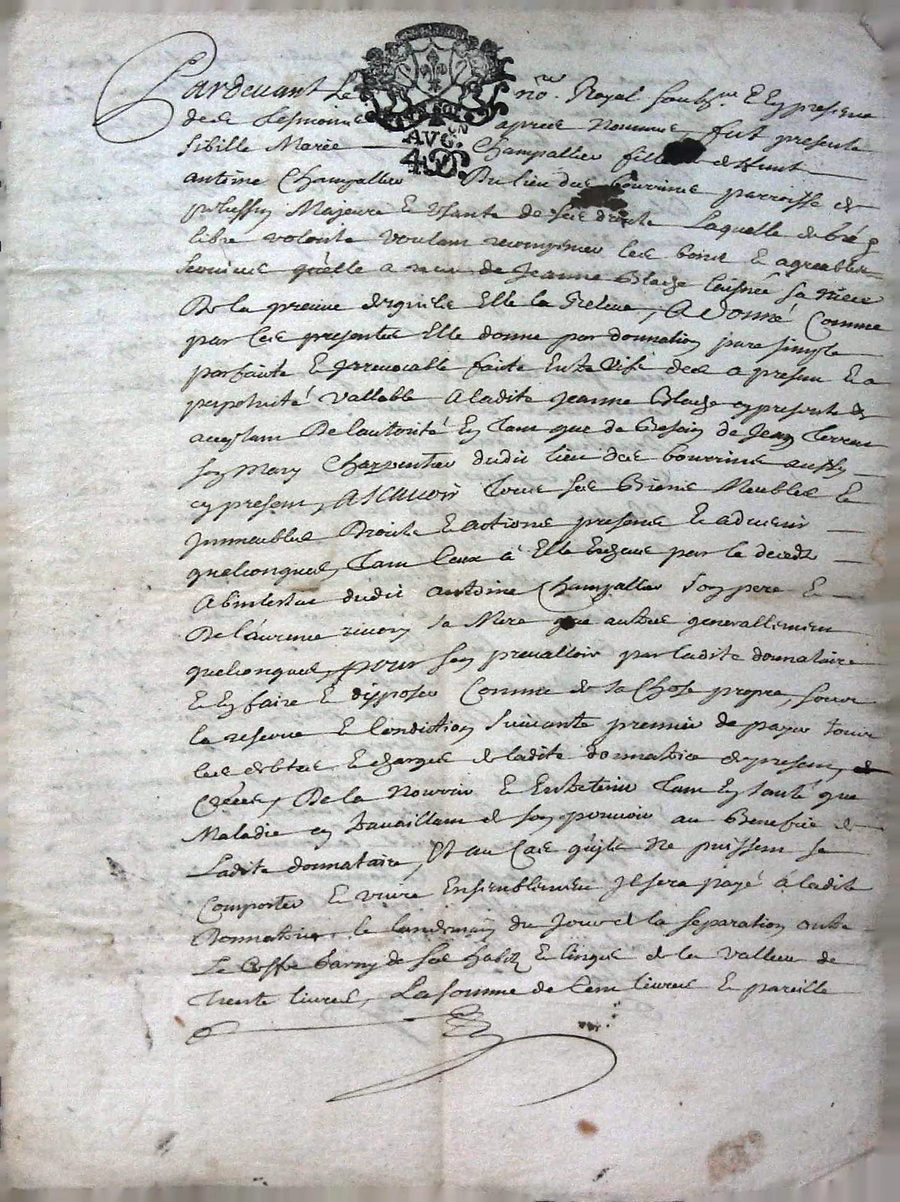 Pardevant Le no.re Royal soubz.ne Et en presence
des tesmoins apres Nommes, fut presente
Sibille Marie Champallier fille de
antoine Champallier Du lieu des bourrine parroisse de
Majeure Et Usante de ses droits Laquelle de
libre volonte voulant recompenser les bons Et agreables
services qu'elle a receu de Jeanne sa niece
De la preuve desquels Elle la Relleve, A donné Comme
par ces presentes Elle donne par donnation pure simple
parfaite Et Irrevocable faite Entre Vifs des a present Et a
perpetuité Vallable A ladite Jeanne cy presente Et
acceptant De l'autorité En tant que de Besoin de Jean
son Mary Charpentier dudit lieu des bourrine aussy
cy present, ASCAVOIR Tous ses Biens Meubles Et
Immeubles Droits Et actions presens Et advenir
quelconques, Tant Ceux à Elle Escheus par le decedz
Abintestat dudit antoine Champallier son pere Et
De Laurence sa Mere que autres generallement
quelconques, pour s'en prevalloir par ladite donnataire
Et En faire Et disposer Comme de sa Chose propre, sous
la reserve Et Condiction Suivante premier de payer tous
les debtes Et charges de ladite donnatrice
Créés, De la Nourrir Et Entretenir Tant En santé que
Maladie en travaillant de son pouvoir au Benefice de
Ladite donnataire, Et au Cas qu'ils Ne puissent se
Comporter Et vivre Ensemblement Il sera payé à ladite
Donnatrice le landemain du Jour de la separation outre
Le Coffre Garny de ses habitz Et linges de la valleur de
Trente livres, La somme de Cent livres Et pareille
AVG.ON